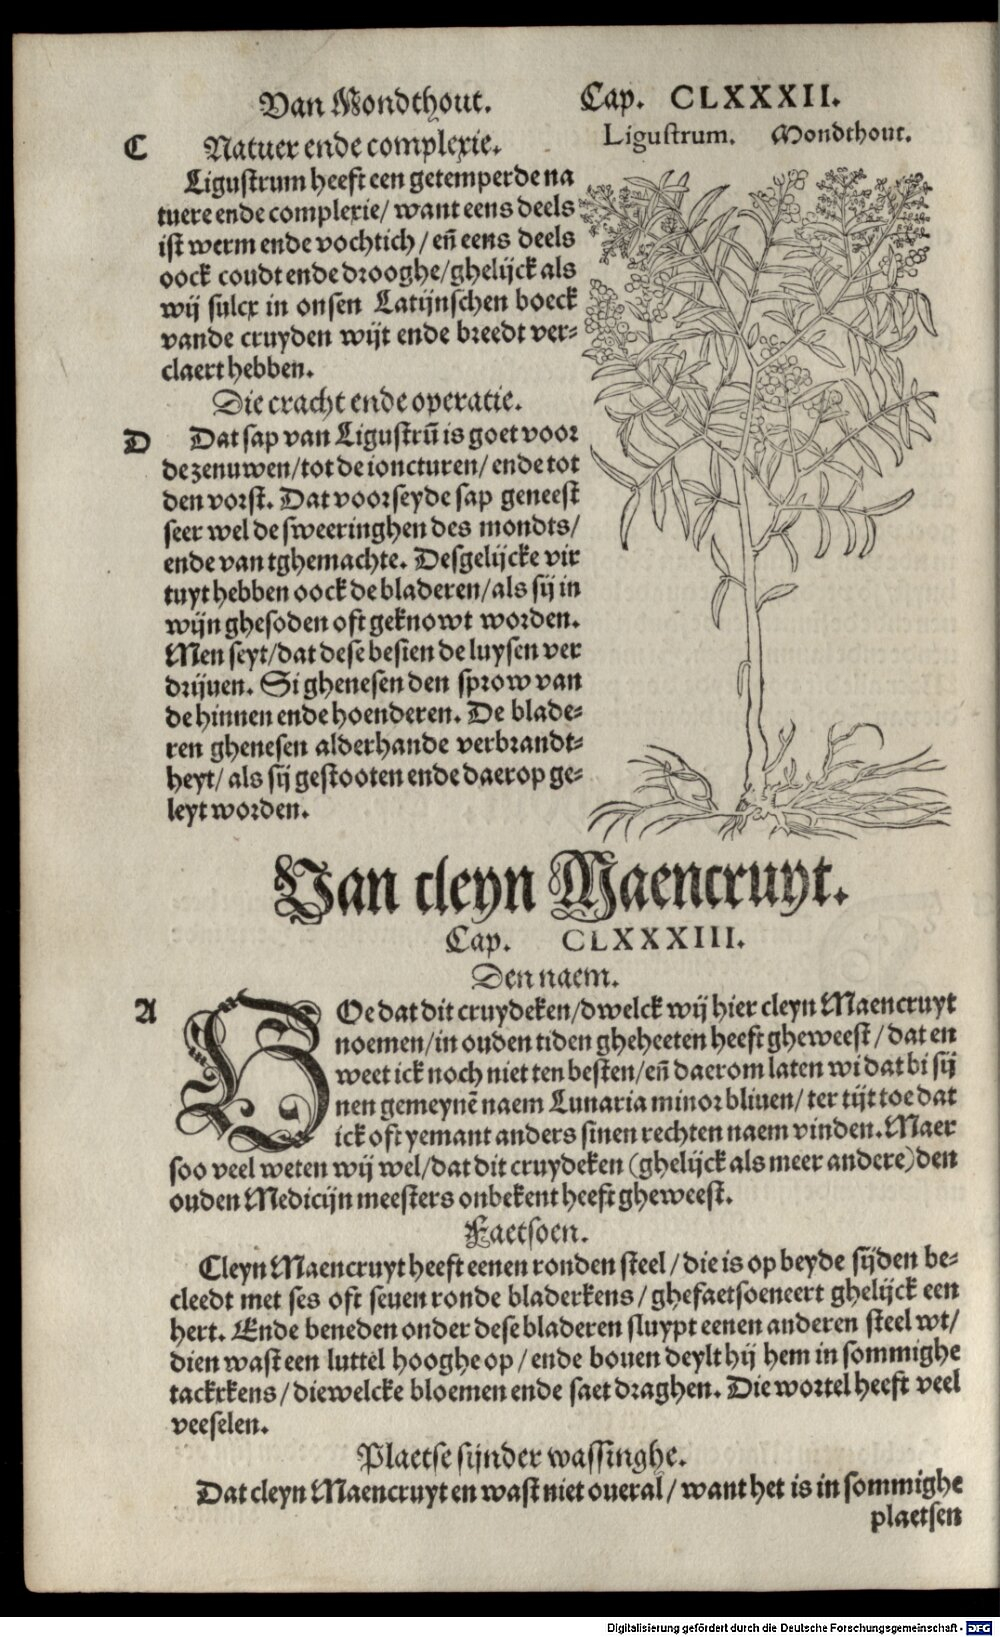 Van Mondthout.
Cap. CLXXXII.
Ligustrum. Mondthout.
C Natuer ende complexie.
Ligustrum heeft een getemperde na
tuere ende complexie/ want eens deels
ist werm ende vochtich/ eñ eens deels
oock coudt ende drooghe/ ghelijck als
wij sulcx in onsen Latijnschen boeck
vande cruyden wijt ende breedt ver-
claert hebben.
Die cracht ende operatie.
D Dat sap van Ligustrũ is goet voor
de zenuwen/ tot de ioncturen/ ende tot
den vorst. Dat voorseyde sap geneest
seer wel de sweeringhen des mondts/
ende van tghemachte. Desgelijcke vir
tuyt hebben oock de bladeren/ als sij in
wijn ghesoden oft geknowt worden.
Men seyt/ dat dese besien de luysen ver
drijuen. Si ghenesen den sprow van
de hinnen ende hoenderen. De blade-
ren ghenesen alderhande verbrandt-
heyt/ als sij gestooten ende daerop ge-
leyt worden.
Van cleyn Maencruyt.
Cap. CLXXXIII.
Den naem.
A HOe dat dit cruydeken/ dwelck wij hier cleyn Maencruyt
noemen/ in ouden tiden gheheeten heeft gheweest/ dat en
weet ick noch niet ten besten/ eñ daerom laten wi dat bi sij
nen gemeynẽ naem Lunaria minor bliuen/ ter tijt toe dat
ick oft yemant anders sinen rechten naem vinden. Maer
soo veel weten wij wel/ dat dit cruydeken (ghelijck als meer andere) den
ouden Medicijn meesters onbekent heeft gheweest.
Faetsoen.
Cleyn Maencruyt heeft eenen ronden steel/ die is op beyde sijden be-
cleedt met ses oft seuen ronde bladerkens/ ghefaetsoeneert ghelijck een
hert. Ende beneden onder dese bladeren sluypt eenen anderen steel wt/
dien wast een luttel hooghe op/ ende bouen deylt hij hem in sommighe
tackxkens/ diewelcke bloemen ende saet draghen. Die wortel heeft veel
veeselen.
Plaetse sijnder wassinghe.
Dat cleyn Maencruyt en wast niet oueral/ want het is in sommighe
plaetsen
Digitalisierung gefördert durch die Deutsche Forschungsgemeinschaft - DFG